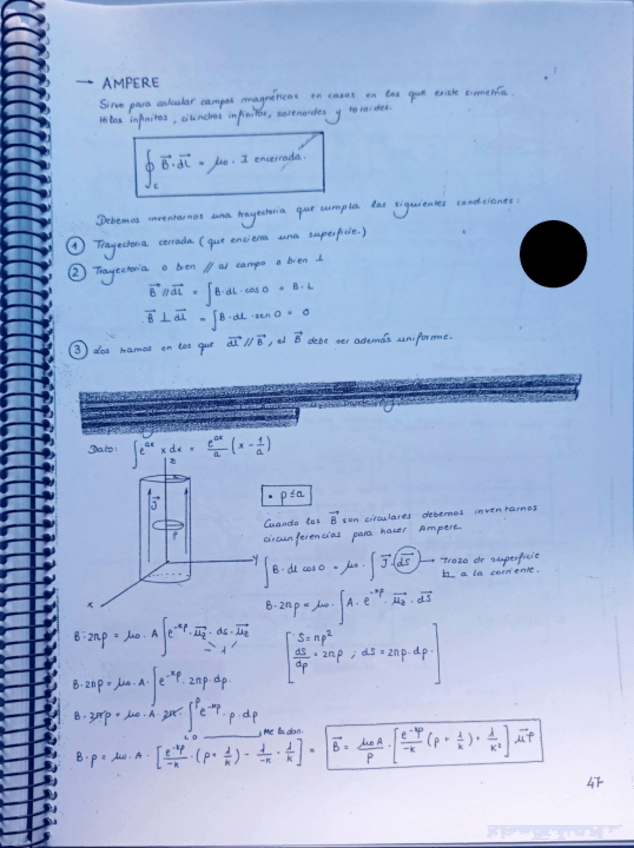 → AMPERE
Sirve para calcular campos magnéticos en casos en los que existe simetría.
Hilos infinitos, cilindros infinitos, solenoides y toroides.
∮c B⃗·dl⃗ = μ₀ · I encerrada.
Debemos inventarnos una trayectoria que cumpla las siguientes condiciones:
① Trayectoria cerrada (que encierra una superficie.)
② Trayectoria o bien // al campo o bien ⊥
B⃗ // dl⃗ = ∫B·dL·cos 0 = B·L
B⃗ ⊥ dl⃗ = ∫B·dL·sen 0 = 0
③ Los tramos en los que dl⃗ // B⃗, el B⃗ debe ser además uniforme.
Dato: ∫e^{ax} x dx = e^{ax}/a (x - 1/a)
z
J⃗
ρ
y
x
• ρ ≤ a
Cuando los B⃗ son circulares debemos inventarnos
circunferencias para hacer Ampere.
∫B·dl cos 0 = μ₀ · ∫J⃗·dS⃗ → Trozo de superficie
⊥ a la corriente.
B·2πρ = μ₀ · ∫A·e^{-kρ}·u⃗z·dS⃗
B·2πρ = μ₀·A ∫e^{-kρ}·u⃗z·ds·u⃗z
1
[S = πρ²
dS/dρ = 2πρ ; dS = 2πρ·dρ.]
B·2πρ = μ₀·A·∫e^{-kρ}·2πρ·dρ.
B·2πρ = μ₀·A·2π·∫₀^ρ e^{-kρ}·ρ·dρ
Me la dan.
B·ρ = μ₀·A·[e^{-kρ}/-k · (ρ + 1/k) - 1/-k · 1/k] = B⃗ = μ₀A/ρ · [e^{-kρ}/-k (ρ + 1/k) + 1/k²] u⃗φ
47